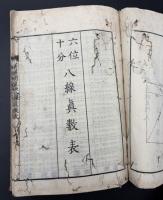 六位
十分
八線真數表